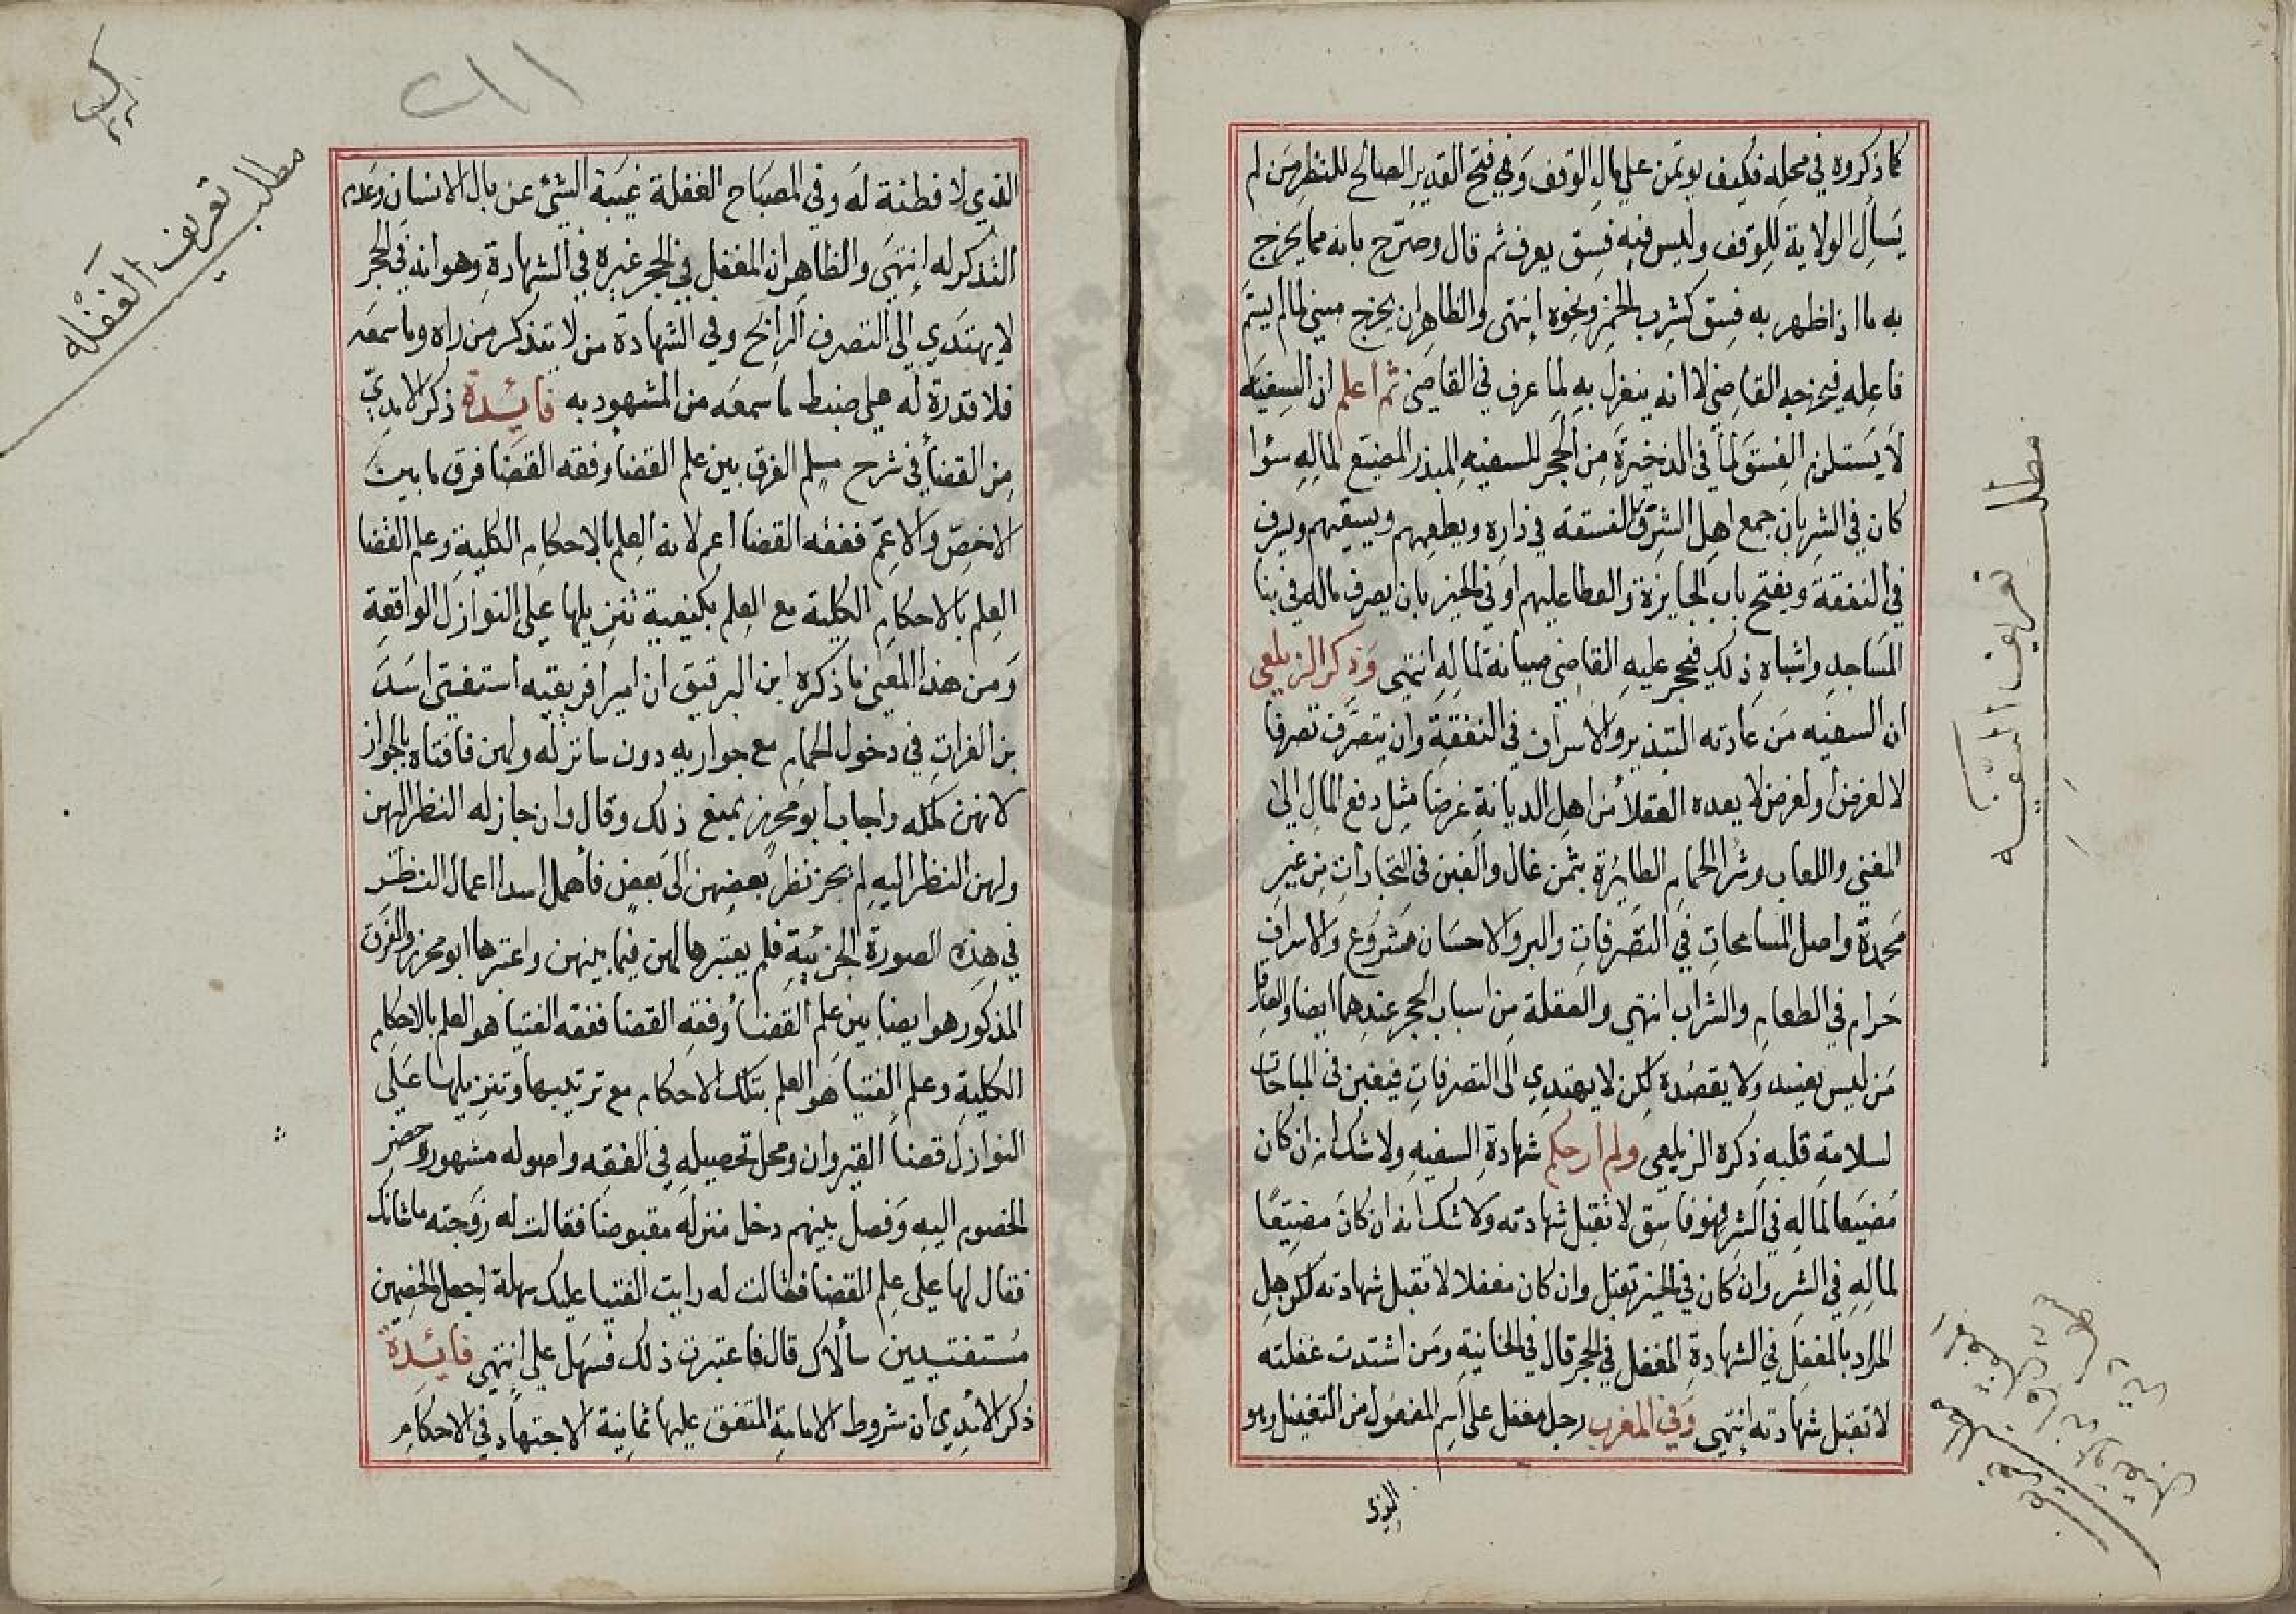 كما ذكروه في محله فكيف يوتمن علي مال الوقف وفي فتح القدير الصالح للنظر من لم
يسأل الولاية للوقف وليس فيه فسق يعرف ثم قال وصرح بانه مما يخرج
به ما اذا ظهر به فسق كشرب الخمر ونحوه إنتهى والظاهر ان يخرج مبني لما لم يسم
فاعله فيخرجه القاضي لا انه ينعزل به لما عرف في القاضي ثم اعلم ان السفيه
لا يستلزم الفسق لما في الذخيرة من الحجر للسفيه المبذر المضيع لماله سوا
كان في الشر بان جمع اهل الشرق الفسقة في داره ويطعمهم ويسقيهم ويسرف
في النفقة ويفتح باب الجايزة والعطا عليهم او في الخير بان يصرف ماله في بنا
المساجد واشباه ذلك فيحجر عليه القاضي صيانة لماله انتهى وذكر الزيلعي
ان السفيه من عادته التبذير والاسراف في النفقة وان يتصرف تصرفا
لا لغرض او لغرض لا يعده العقلاء من اهل الديانة غرضا مثل دفع المال الى
المغني واللعاب وشرا الحمام الطائرة بثمن غال والغبن في التجارات من غير
محمدة واصل المسامحات في التصرفات والبر والاحسان مشروع والاسراف
حرام في الطعام والشراب انتهى والغفلة من اسباب الحجر عندهما ايضا والغافل
من ليس بمفسد ولا يقصده لكن لا يهتدي الى التصرفات فيغبن في المباحات
لسلامة قلبه ذكره الزيلعي ولم ار حكم شهادة السفيه ولا شك انه ان كان
مضيعا لماله في الشر فهو فاسق لا تقبل شهادته ولا شك انه ان كان مضيعا
لماله في الشر وان كان في الخير تقبل وان كان مغفلا لا تقبل شهادته لكن هل
المراد بالمغفل في الشهادة المغفل في الحجر قال في الخانية ومن اشتدت غفلته
لا تقبل شهادته إنتهى وفي المغرب رجل مغفل على اسم المفعول من التغفيل وهو
الذي
مطلب تعريف السفيه
الذي لا فطنة له وفي المصباح الغفلة غيبة الشئ عن بال الانسان وعدم
التذكر له إنتهى والظاهر ان المغفل في الحجر غيره في الشهادة وهو انه في الحجر
لا يهتدي الى التصرف الرابح وفي الشهادة من لا يتذكر من راه وما سمعه
فلا قدرة له على ضبط ما سمعه من المشهود به فائدة ذكر الابدي
من القضاء في شرح مسلم الفرق بين علم القضا وفقه القضا فرق ما بين
الاخص والاعم ففقه القضا اعم لانه العلم بالاحكام الكلية وعلم القضا
العلم بالاحكام الكلية مع العلم بكيفية تنزيلها على النوازل الواقعة
ومن هذا المعنى ما ذكره ابن الرقيق ان امير افريقيه استفتى اسد
بن الفرات في دخول الحمام مع جواريه دون ساتر له ولهن فافتاه بالجواز
لانهن ملكه واجاب ابو محرز بمنع ذلك وقال وان جاز له النظر اليهن
ولهن النظر اليه لم يجز نظر بعضهن الى بعض فأهمل اسدا اعمال النظر
في هذه الصورة الجزئية فلم يعتبر حالهن فيما بينهن واعتبرها ابو محرز والفرق
المذكور هو ايضا بين علم القضاء وفقه القضا ففقه الفتيا هو العلم بالاحكام
الكلية وعلم الفتيا هو العلم بتلك الاحكام مع ترتيبها وتنزيلها على
النوازل قضا القيروان ومحل تحصيله في الفقه واصوله مشهور وحضر
الخصوم اليه وفصل بينهم دخل منزله مقبوضا فقالت له زوجته ما شانك
فقال لها على علم القضا فقالت له رايت الفتيا عليك سهلة اجعل الخصمين
مستفتيين سألاك قال فاعتبرت ذلك فسهل علي إنتهى فائدة
ذكر الابدي ان شروط الامامة المتفق عليها ثمانية الاجتهاد في الاحكام
مطلب تعريف الغفله
٢١١